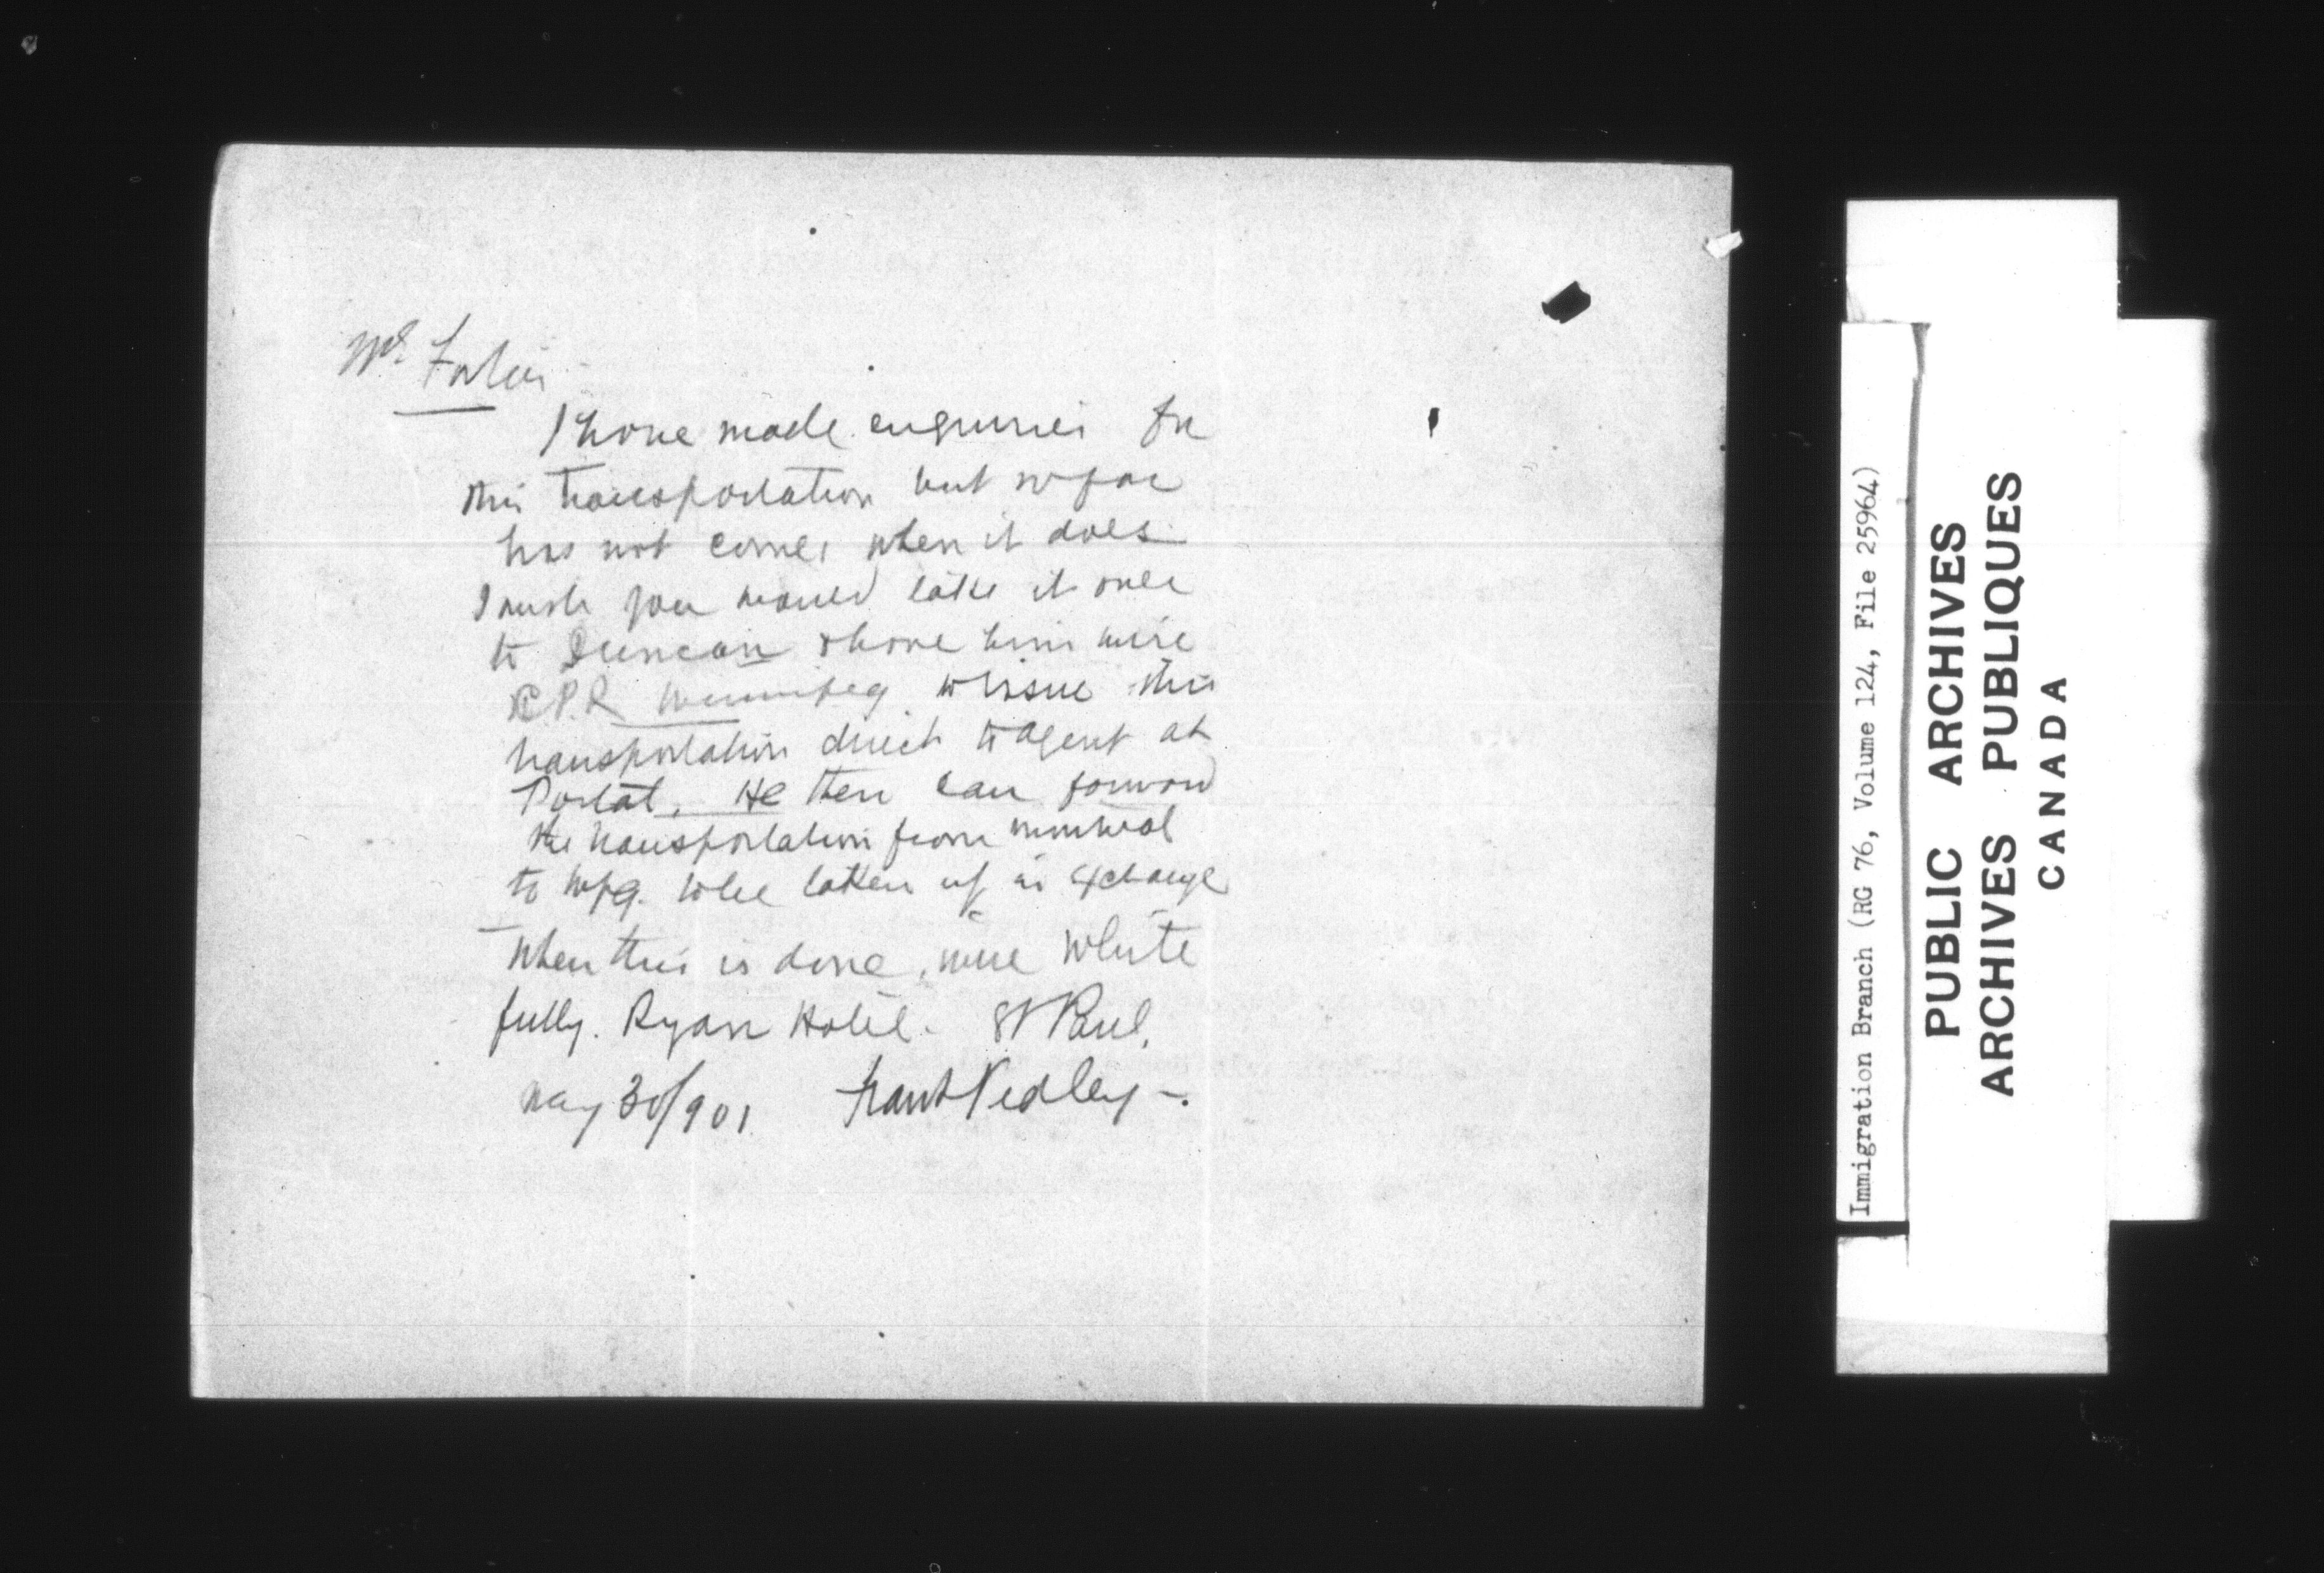 Mr. Fortier
I have made enquiries for
this transportation but so far
has not come, when it does
I wish you would take it over
to Duncan & have him wire
C.P.R Winnipeg to issue this
transportation direct to agent at
Portal. He then can forward
the transportation from montreal
to Wpg. to be taken up in exchange
When this is done, wire White
fully. Ryan Hotel. St Paul.
May 30/901 Frank Pedley -.
Immigration Branch (RG 76, Volume 124, File 25964)
PUBLIC ARCHIVES
ARCHIVES PUBLIQUES
CANADA